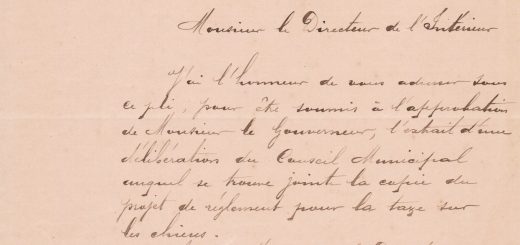 Monsieur le Directeur de l'Intérieur
J'ai l'honneur de vous adresser sous
ce pli, pour être soumis à l'approbation
de Monsieur le Gouverneur, l'extrait d'une
délibération du Conseil Municipal
auquel se trouve jointe la copie du
projet de réglement pour la taxe sur
les chiens.